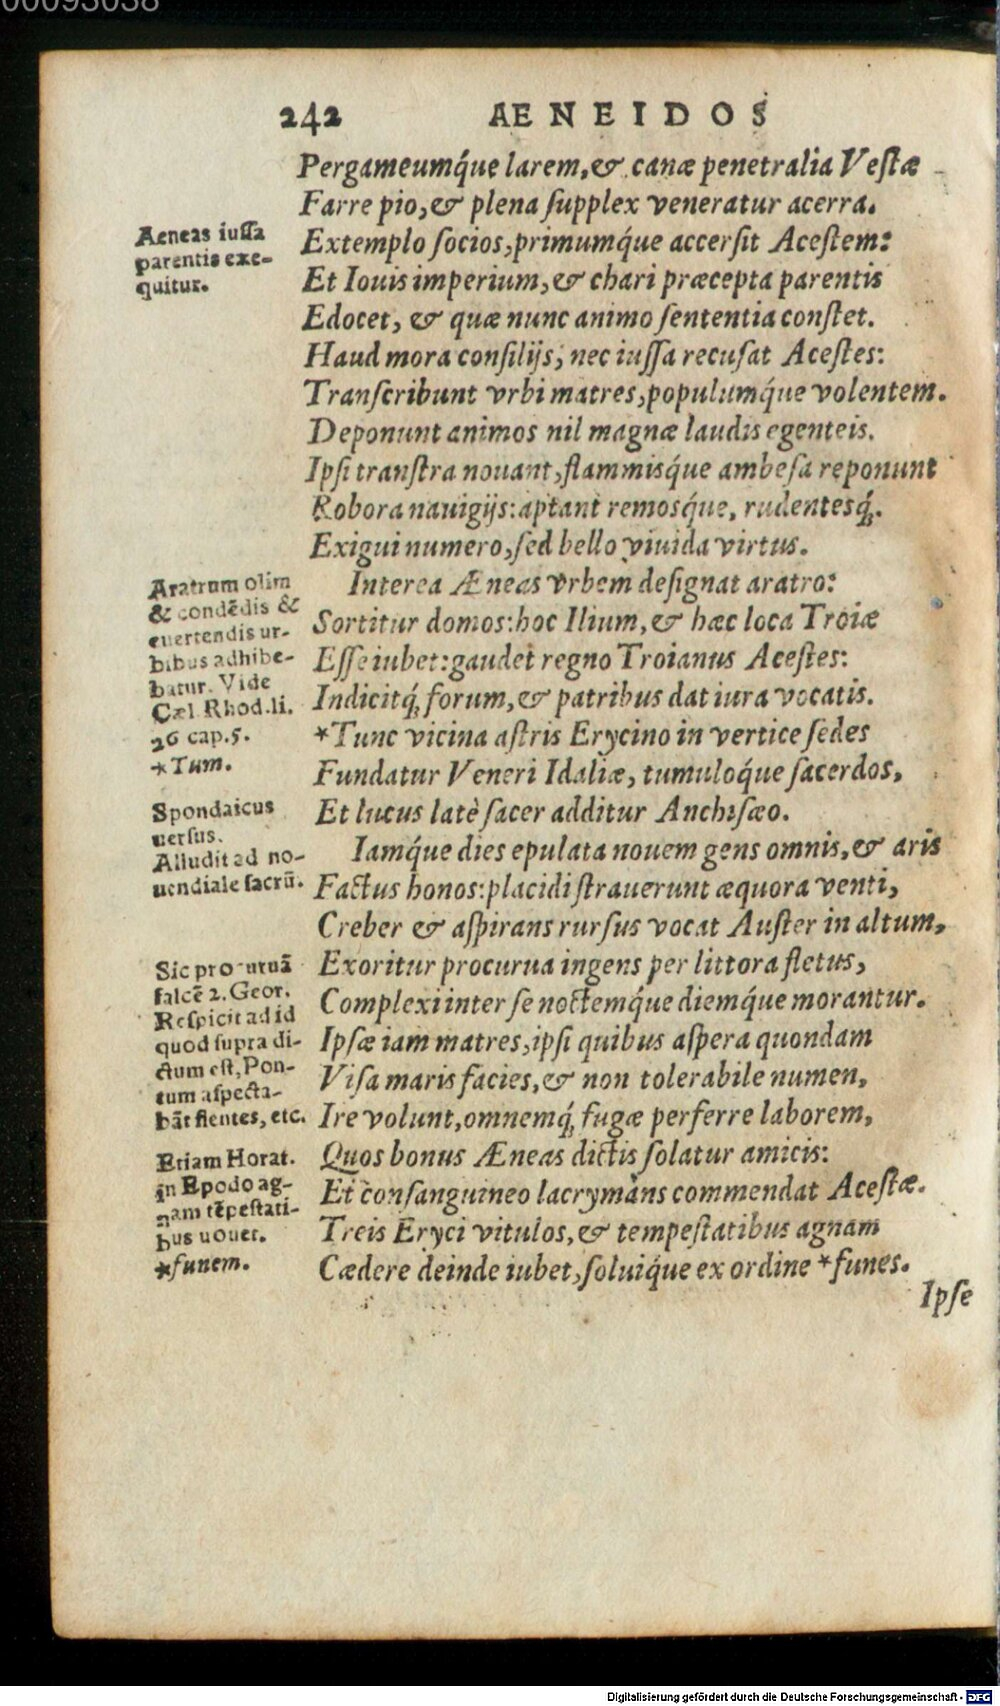 00093038
242 AENEIDOS
Pergameumq́ue larem, & canæ penetralia Vestæ
Farre pio, & plena supplex veneratur acerra.
Aeneas iussa
parentis exe-
quitur.
Extemplo socios, primumq́ue accersit Acestem:
Et Iouis imperium, & chari præcepta parentis
Edocet, & quæ nunc animo sententia constet.
Haud mora consilijs; nec iussa recusat Acestes:
Transcribunt vrbi matres, populumq́ue volentem.
Deponunt animos nil magnæ laudis egenteis.
Ipsi transtra nouant, flammisq́ue ambesa reponunt
Robora nauigijs: aptant remosq́ue, rudentesq́;.
Exigui numero, sed bello viuida virtus.
Aratrum olim
& condēdis &
euertendis ur-
bibus adhibe-
batur. Vide
Cæl. Rhod. li.
26 cap. 5.
*Tum.
Interea Æneas vrbem designat aratro:
Sortitur domos: hoc Ilium, & hæc loca Troiæ
Esse iubet: gaudet regno Troianus Acestes:
Indicitq́; forum, & patribus dat iura vocatis.
*Tunc vicina astris Erycino in vertice sedes
Fundatur Veneri Idaliæ, tumuloq́ue sacerdos,
Spondaicus
uersus.
Alludit ad no-
uendiale sacrū.
Et lucus latè sacer additur Anchisæo.
Iamq́ue dies epulata nouem gens omnis, & aris
Factus honos: placidi strauerunt æquora venti,
Creber & aspirans rursus vocat Auster in altum,
Sic procuruā
falcē 2. Geor.
Respicit ad id
quod supra di-
ctum est, Pon-
tum aspecta-
bāt flentes, etc.
Exoritur procurua ingens per littora fletus,
Complexi inter se noctemq́ue diemq́ue morantur.
Ipsæ iam matres, ipsi quibus aspera quondam
Visa maris facies, & non tolerabile numen,
Ire volunt, omnemq́; fugæ perferre laborem,
Etiam Horat.
in Epodo ag-
nam tēpestati-
bus uouet.
*funem.
Quos bonus Æneas dictis solatur amicis:
Et consanguineo lacrymans commendat Acestæ.
Treis Eryci vitulos, & tempestatibus agnam
Cædere deinde iubet, soluiq́ue ex ordine *funes.
Ipse
Digitalisierung gefördert durch die Deutsche Forschungsgemeinschaft - DFG